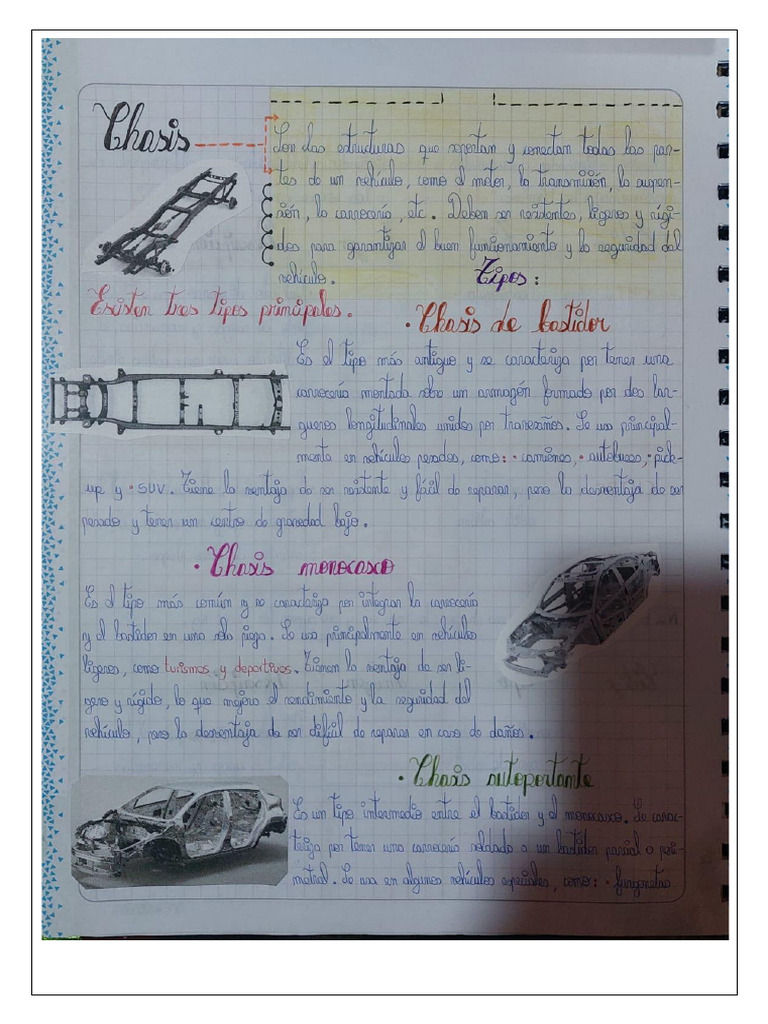 Chasis
Son las estructuras que soportan y conectam todas las par-
tes de un vehículo, como el motor, la transmisión, la suspen-
sión, la carrocería, etc. Deben ser resistentes, ligeros y rígi-
dos para garantizar el buen funcionamiento y la seguridad del
vehículo. Tipos:
Existen tres tipos principales.
• Chasis de bastidor
Es el tipo más antiguo y se caracteriza por tener una
carrocería montada sobre un armazón formado por dos lar-
gueros longitudinales unidos por travesaños. Se usa principal-
mente en vehículos pesados, como: • camiones, • autobuses, • pick-
up y • SUV. Tiene la ventaja de ser resistente y fácil de reparar, pero la desventaja de ser
pesado y tener un centro de gravedad bajo.
• Chasis monocasco
Es el tipo más común y se caracteriza por integrar la carrocería
y el bastidor en una sola pieza. Se usa principalmente en vehículos
ligeros, como turismos y deportivos. Tienen la ventaja de ser li-
gero y rígido, lo que mejora el rendimiento y la seguridad del
vehículo, pero la desventaja de ser difícil de reparar en caso de daños.
• Chasis autoportante
Es un tipo intermedio entre el bastidor y el monocasco. Se carac-
teriza por tener una carrocería soldada a un bastidor parcial o peri-
metral. Se usa en algunos vehículos especiales, como: • furgonetas